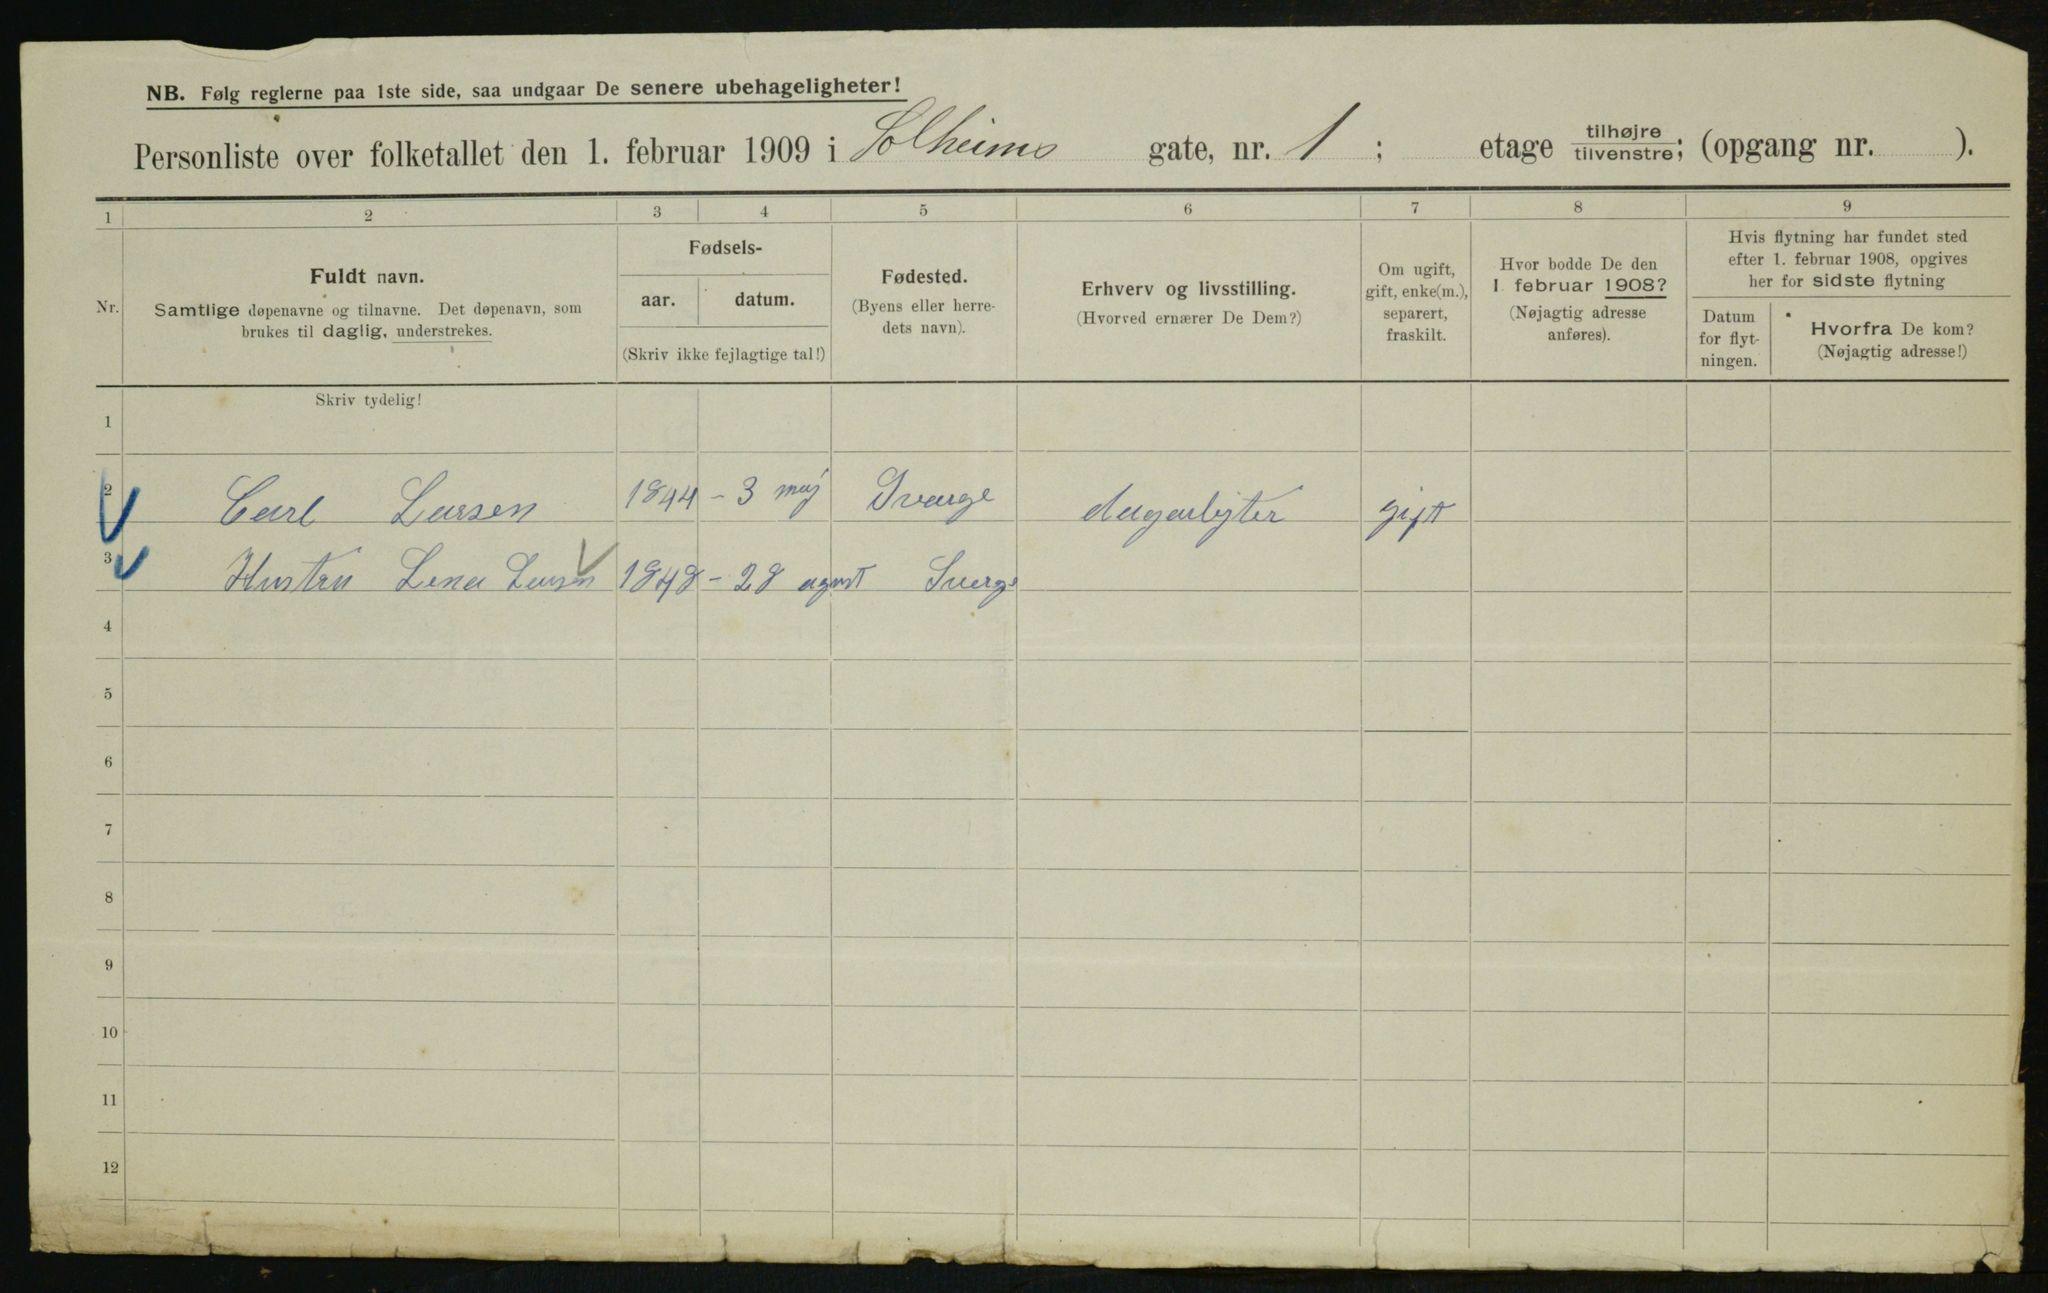 NB. Følg reglerne paa 1ste side, saa undgaar De senere ubehageligheter!
Personliste over folketallet den 1. februar 1909 i Solheims gate, nr. 1 ; etage tilhøjre tilvenstre; (opgang nr. ).
1 2 3 4 5 6 7 8 9
Nr.
Fuldt navn.
Samtlige døpenavne og tilnavne. Det døpenavn, som
brukes til daglig, understrekes.
Fødsels-
aar. datum.
(Skriv ikke fejlagtige tal!)
Fødested.
(Byens eller herre-
dets navn).
Erhverv og livsstilling.
(Hvorved ernærer De Dem?)
Om ugift,
gift, enke(m.),
separert,
fraskilt.
Hvor bodde De den
1. februar 1908?
(Nøjagtig adresse
anføres).
Hvis flytning har fundet sted
efter 1. februar 1908, opgives
her for sidste flytning
Datum
for flyt-
ningen.
Hvorfra De kom?
(Nøjagtig adresse!)
Skriv tydelig!
1
2 Carl Larsen 1844 - 3 maj Svarge dagarbjter gift
3 Hustru Lena Larsen 1848 - 28 agust Sverge
4
5
6
7
8
9
10
11
12